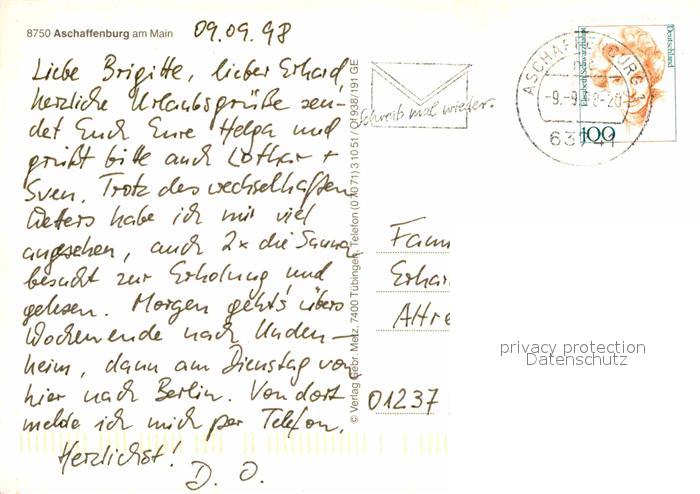 8750 Aschaffenburg am Main
09.09.98
Liebe Brigitte, lieber Erhard,
herzliche Urlaubsgrüße sen-
det Euch Eure Helga und
grüßt bitte auch Lothar +
Sven. Trotz des wechselhaften
Wetters habe ich mir viel
angesehen, auch 2x die Sauna
besucht zur Erholung und
gelesen. Morgen geht's übers
Wochenende nach Unden-
heim, dann am Dienstag von
hier nach Berlin. Von dort
melde ich mich per Telefon.
Herzlichst!
D. O.
© Verlag Gebr. Metz, 7400 Tübingen, Telefon (07071) 31051/ 01938/191 GE
Schreib mal wieder.
ASCHAFFENBURG 1
-9.-9.98-20
63741
Deutschland
100
Fam
Erhar
Altre
01237
privacy protection
Datenschutz